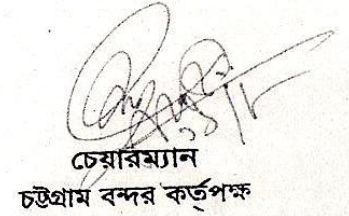 চেয়ারম্যান
চট্টগ্রাম বন্দর কর্তৃপক্ষ